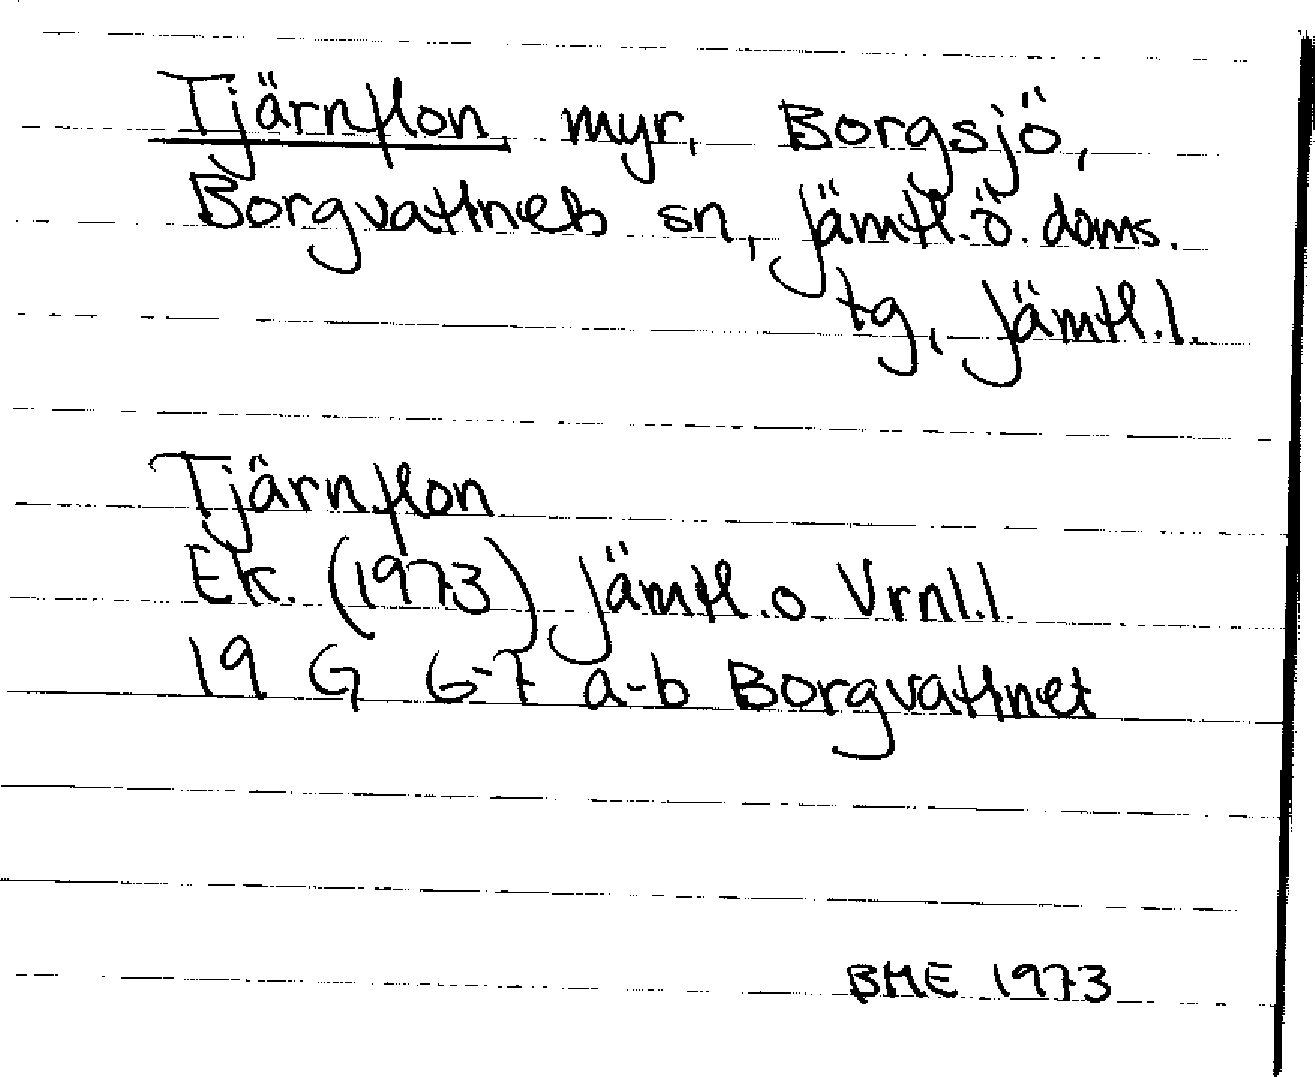 Tjärnflon myr, Borgsjö,
Borgvattnets sn, Jämtl. ö. doms.
tg, Jämtl. l.
Tjärnflon
Ek. (1973) Jämtl. o. Vrnl. l.
19 G 6-7 a-b Borgvattnet
BME 1973